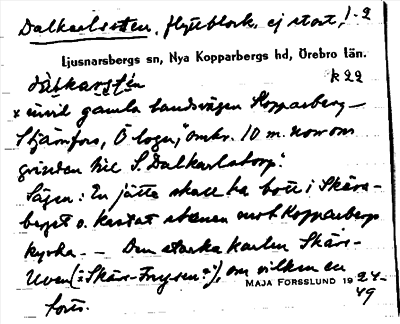 Dalkarlssten, flyttblock, ej stort, 1-2
Ljusnarsbergs sn, Nya Kopparbergs hd, Örebro län.
k 22
x invid gamla landsvägen Kopparberg—
Stjärnfors, Ö log., omkr. 10 m. norr om
grinden till S. Dalkarlstorp.
Sägen: En jätte skall ha bott i Skärs-
berget o. kastat stenen mot Kopparbergs
kyrka. — Den starka karlen Skärs-
om vilken en
MAJA FORSSLUND 1924-
49
forts.